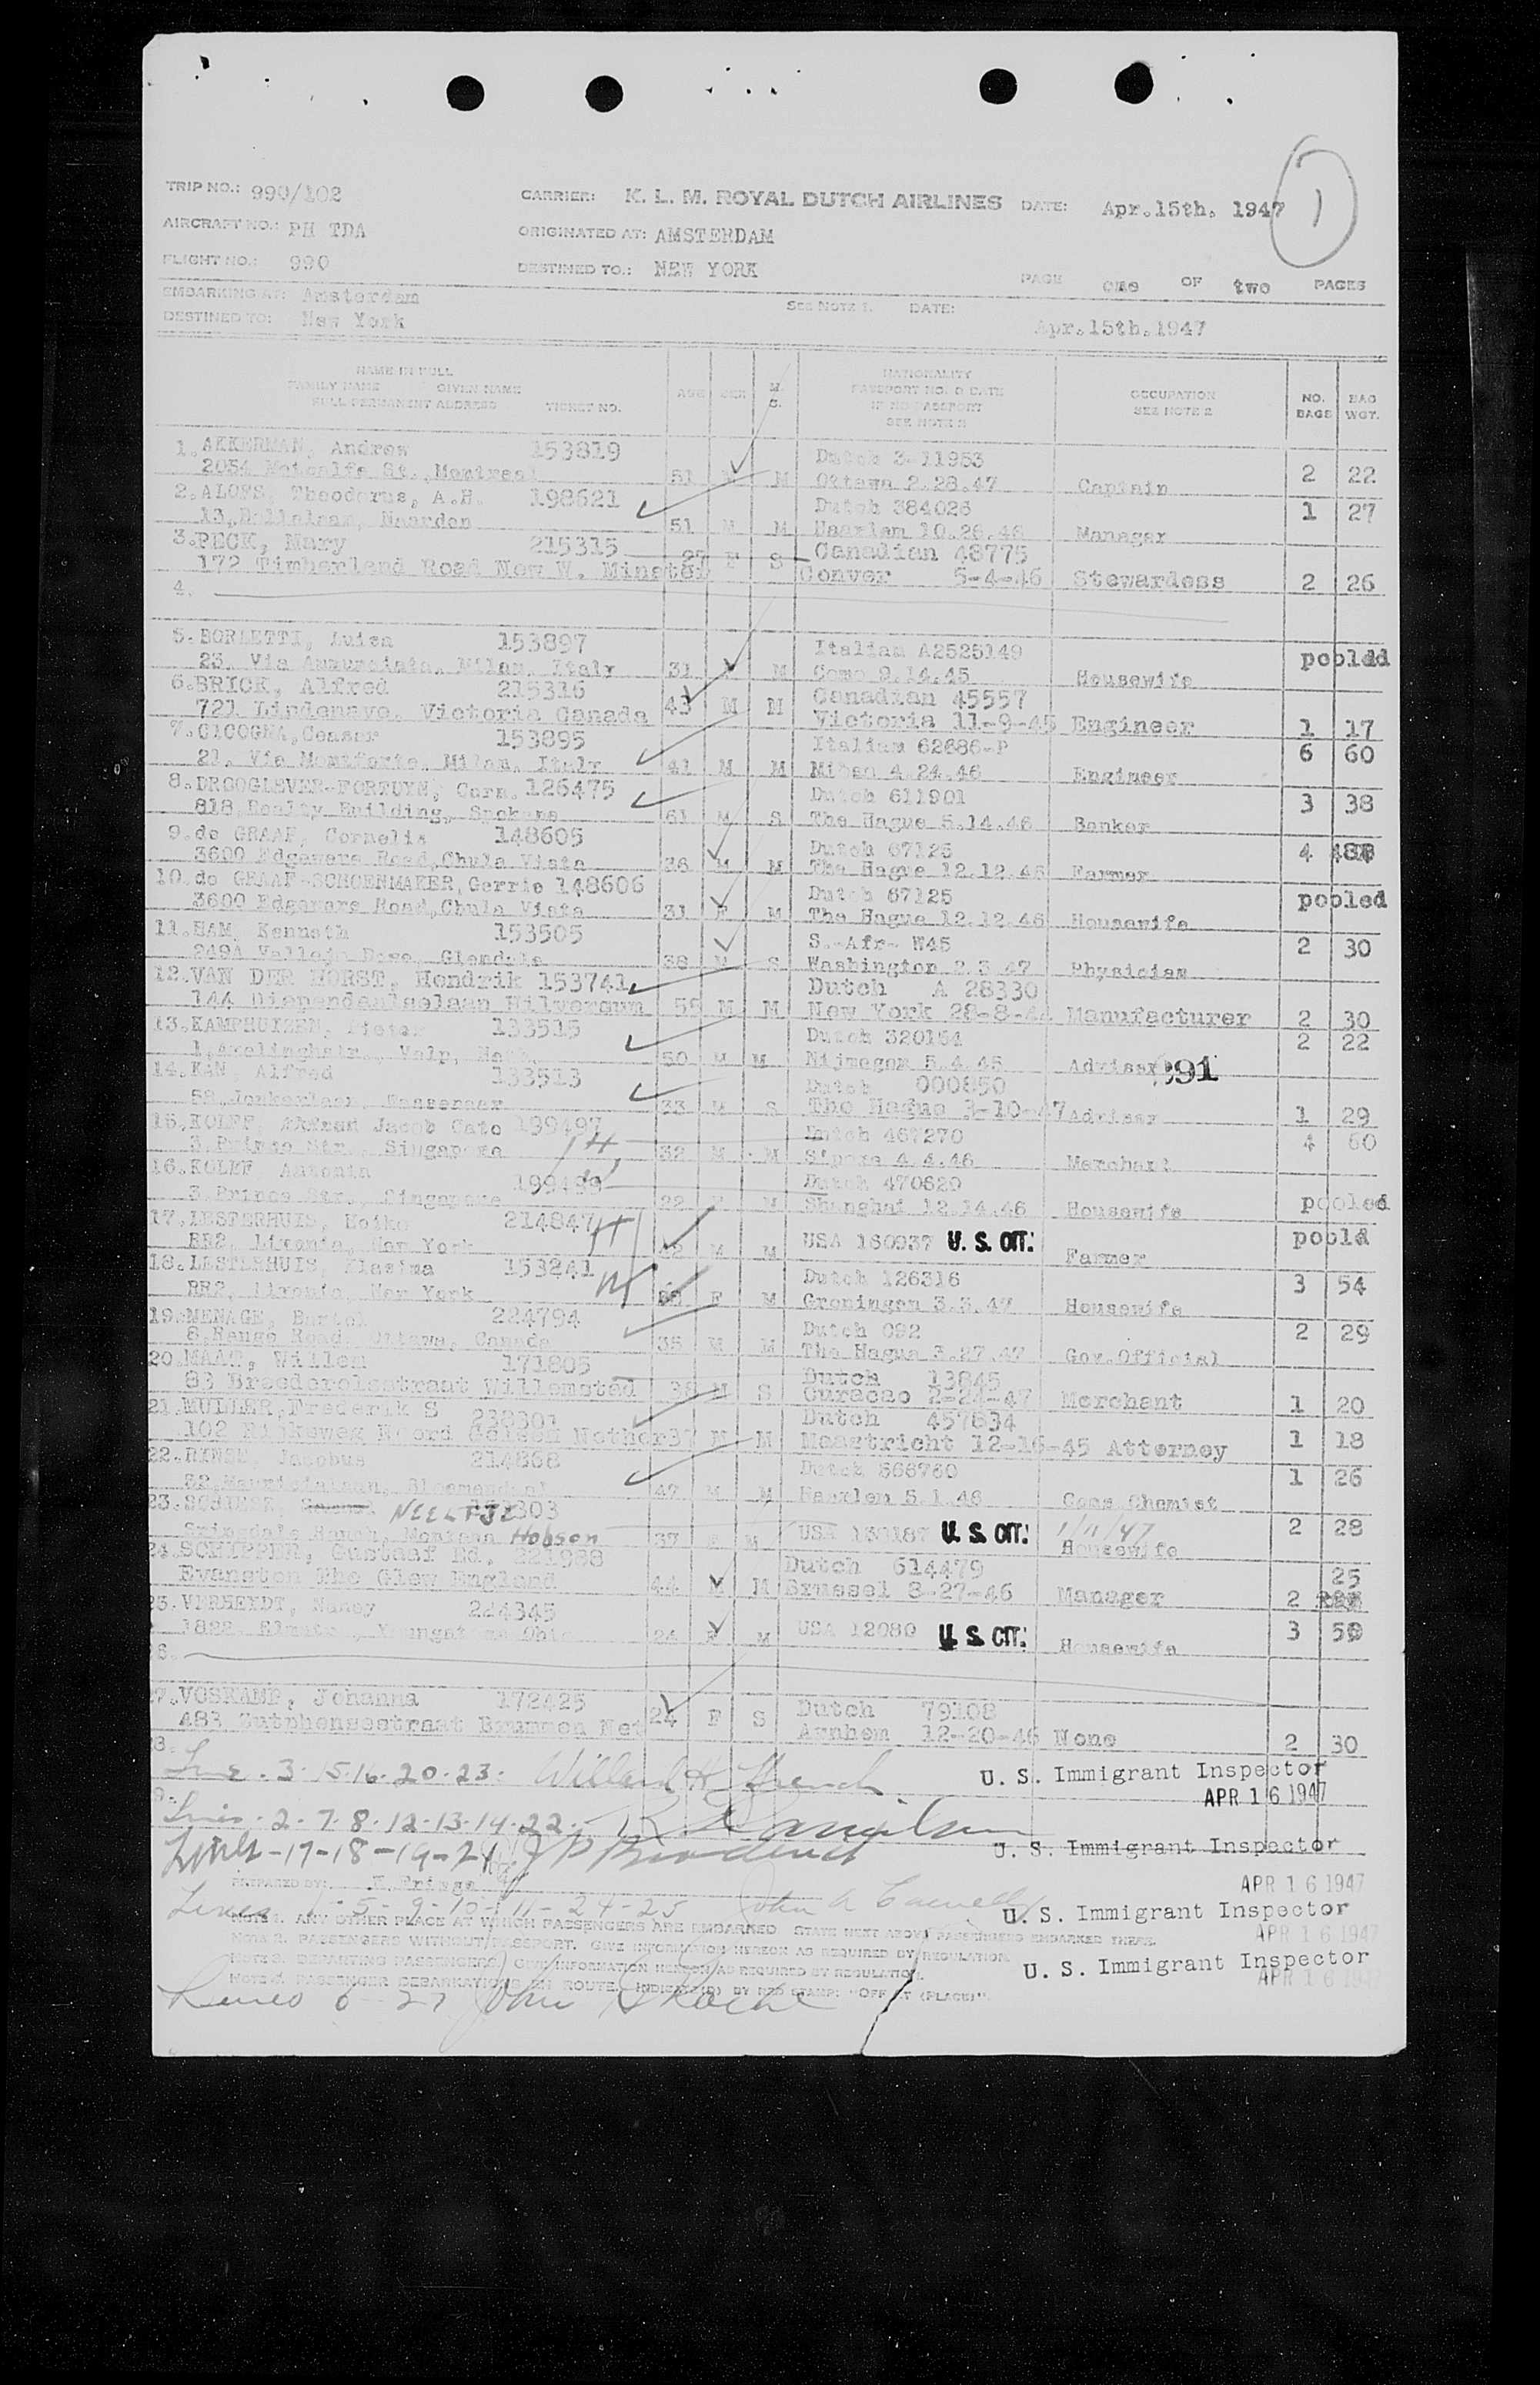 TRIP NO.: 990/102 CARRIER: K. L. M. ROYAL DUTCH AIRLINES DATE: Apr.15th. 1947 1
AIRCRAFT NO.: PH TDA ORIGINATED AT: AMSTERDAM
FLIGHT NO.: 990 DESTINED TO.: NEW YORK PAGE one OF two PAGES
EMBARKING AT: Amsterdam SEE NOTE 1. DATE:
DESTINED TO: New York Apr.15th.1947
NAME IN FULL
FAMILY NAME GIVEN NAME
FULL PERMANENT ADDRESS TICKET NO. AGE SEX M S. NATIONALITY PASSPORT NO. & DATE IF NO PASSPORT SEE NOTE 2 OCCUPATION SEE NOTE 2 NO. BAGS BAG WGT.
1. AKKERMAN, Andrew 153819 Dutch 3-11953
2054 Metcalfe St., Montreal 51 M M Ottawa 2.28.47 Captain 2 22
2. ALOFS, Theodorus, A.H. 198621 Dutch 384026 1 27
13, Naarden 51 M M Haarlem 10.26.46 Manager
3. PECK, Mary 215315 27 F S Canadian 48775
172 Timberland Road New W. Minster Conver 5-4-46 Stewardess 2 26
4.
5. BORLETTI, Luisa 153897 Italian A2525149 pooled
23, Via Annunciata, Milan, Italy 31 M Como 9.14.45 Housewife
6. BRICK, Alfred 215316 43 M M Canadian 45557
721 Lindenave. Victoria Canada Victoria 11-9-45 Engineer 1 17
7. CICOGNA, Ceasar 153895 Italian 62686-P 6 60
21, Via Monforte, Milan, Italy 41 M M Milan 4.24.46 Engineer
8. DROOGLEVER-FORTUYN, Corn. 126475 Dutch 611901 3 38
818, Realty Building, Spokane 61 M S The Hague 5.14.46 Banker
9. de GRAAF, Cornelis 148605 Dutch 67125 4
3600 Edgemere Road, Chula Vista 36 M M The Hague 12.12.46 Farmer
10. de GRAAF-SCHOENMAKER, Gerrie 148606 Dutch 67125 pooled
3600 Edgemere Road, Chula Vista 31 F M The Hague 12.12.46 Housewife
11. HAM, Kenneth 153505 S.-Afr- W45 2 30
249A Vallejo Dove, Glendale 38 M S Washington 2.3.47 Physician
12. VAN DER HORST, Hendrik 153741 Dutch A 28330
144 Diependaalselaan Hilversum 55 M M New York 28-8-44 Manufacturer 2 30
13. KAMPHUIZEN, Pieter 133515 Dutch 320154 2 22
1, Velp, 50 M M Nijmegen 5.4.45 Adviser 291
14. KAN, Alfred 133513 Dutch 000850
58, Jonkerlaan, Wassenaar 33 M S The Hague 3-10-47 Adviser 1 29
15. KOLFF, Jacob Cato 199497 Dutch 467270 4 60
3, Prince Str., Singapore 32 M M S'pore 4.4.46 Merchant
16. KOLFF Antonia 199499 Dutch 470629
3, Prince Str., Singapore 22 F M Shanghai 12.14.46 Housewife pooled
17. LESTERHUIS, Heiko 214847 USA 160937 U. S. CIT. poold
RR2, New York 42 M M Farmer
18. LESTERHUIS, Klasina 153241 Dutch 126316 3 54
RR2, New York F M Groningen 3.3.47 Housewife
19. MENAGE, Bartel 224794 Dutch 092 2 29
8, Range Road, Ottawa, Canada 35 M M The Hague 3.27.47 Gov.Official
20. MAAS, Willem 171805 Dutch 13845
83 Brederolestraat Willemstad 38 M S Curacao 2-24-47 Merchant 1 20
21. MULLER, Frederik S 238301 Dutch 457634
102 Rijksweg Noord Geleen Nether 37 M M Maastricht 12-16-45 Attorney 1 18
22. RINSE, Jacobus 214868 Dutch 566760 1 26
52, Mauritslaan, Bloemendaal 47 M M Haarlem 5.1.46 Cons Chemist
23. NEELTJE 303 2 28
Springdale Ranch, Montana Hobson 37 F M USA 130187 U. S. CIT. 1/11/47 Housewife
24. SCHIPPER, Gustaaf Ed. 221988 Dutch 614479 25
Evanston The Glew England 44 M M Brussel 8-27-46 Manager 2
25. VERHEYDT, Nancy 224345
1822, Youngstown Ohio 24 F M USA 12080 U. S. CIT. Housewife 3 59
26.
27. VOSKAMP, Johanna 172425 24 F S Dutch 79108
483 Zutphensestraat Brummen Net Arnhem 12-20-46 None 2 30
28.
Line. 3. 15.16. 20. 23. Willard H French U. S. Immigrant Inspector
APR 1 6 1947
9.
Lines. 2. 7. 8. 12-13.14.22.
U. S. Immigrant Inspector
Lines-17-18-19-21
APR 1 6 1947
PREPARED BY: E.Fringa
Lines 1- 5- 9-10-11-24-25 John A U. S. Immigrant Inspector
NOTE 1. ANY OTHER PLACE AT WHICH PASSENGERS ARE EMBARKED STATE NEXT ABOVE PASSENGERS EMBARKED THERE. APR 1 6 1947
NOTE 2. PASSENGERS WITHOUT PASSPORT. GIVE INFORMATION HEREON AS REQUIRED BY REGULATION.
NOTE 3. DEPARTING PASSENGERS, GIVE INFORMATION HEREON AS REQUIRED BY REGULATION. U. S. Immigrant Inspector
NOTE 4. PASSENGER DEBARKATIONS EN ROUTE, INDICATED BY RED STAMP: "OFF AT (PLACE)". APR 1 6 1947
Lines 6-27 John